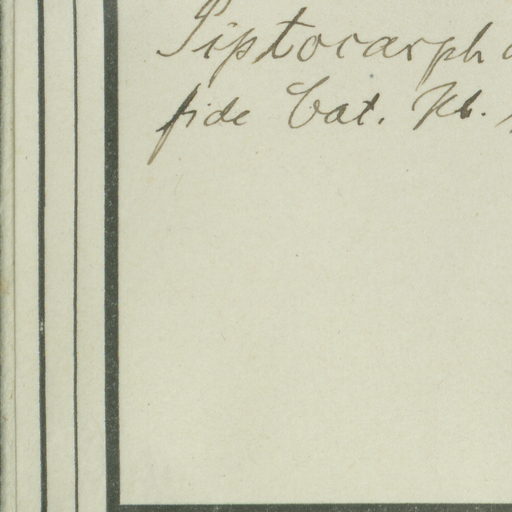 Piptocarpha
fide Cat. Kb.